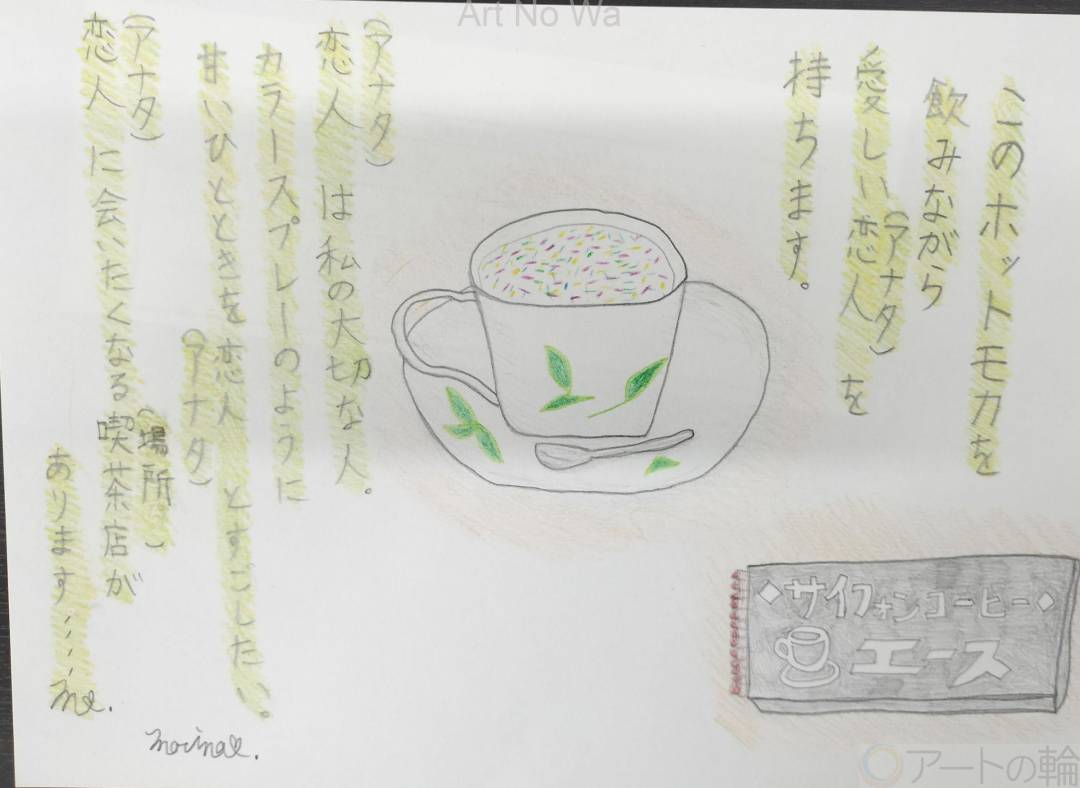 Art No Wa
このホットモカを
飲みながら
愛しい恋人(アナタ)を
持ちます。
恋人(アナタ)は私の大切な人。
カラースプレーのように
甘いひとときを恋人(アナタ)とすごしたい。
恋人(アナタ)に会いたくなる喫茶店(場所)が
あります……Me.
◆サイフォンコーヒー◆
エース
アートの輪